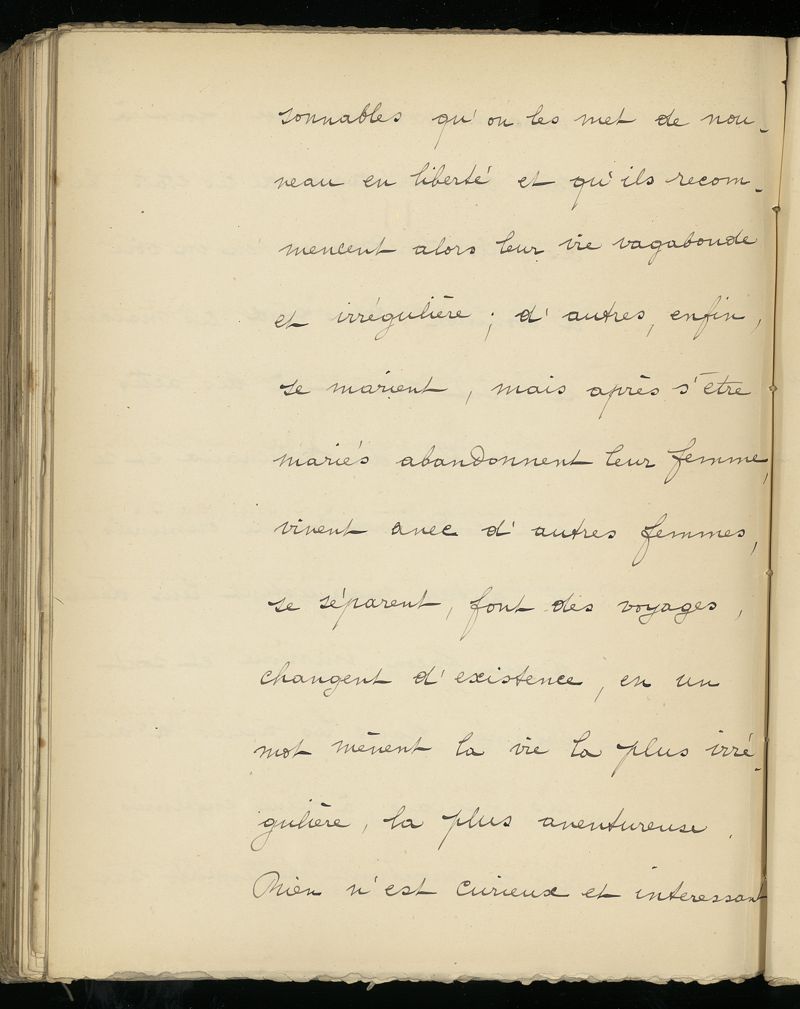 sonnables qu'on les met de nou-
veau en liberté et qu'ils recom-
mencent alors leur vie vagabonde
et irrégulière ; d'autres, enfin,
se marient, mais après s'être
mariés abandonnent leur femme,
vivent avec d'autres femmes,
se séparent, font des voyages,
changent d'existence, en un
mot mènent la vie la plus irré-
gulière, la plus aventureuse.
Rien n'est curieux et interessant